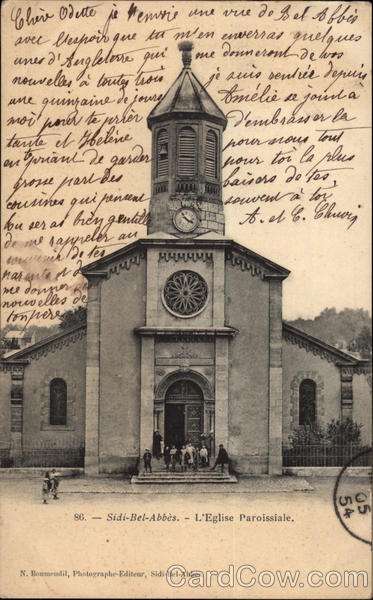 Chère Odette je t'envoie une vue de Bel Abbès
avec l'espoir que tu m'en enverras quelques
unes d'Angleterre qui me donneront de vos
nouvelles à toutes trois je suis rentrée depuis
une quinzaine de jours Amélie se joint à
moi pour te prier d'embrasser la
tante et Hélène pour nous tout
en priant de garder pour toi la plus
grosse part des baisers de tes
cousines qui pensent souvent à toi
tu seras bien gentille A. et C.
de me rappeler au
souvenir de tes
parents et de
me donner des
nouvelles de
ton père
86. — Sidi-Bel-Abbès. - L'Eglise Paroissiale.
05
54
N. Boumendil, Photographe-Editeur, Sidi-Bel-Abbès
CardCow.com